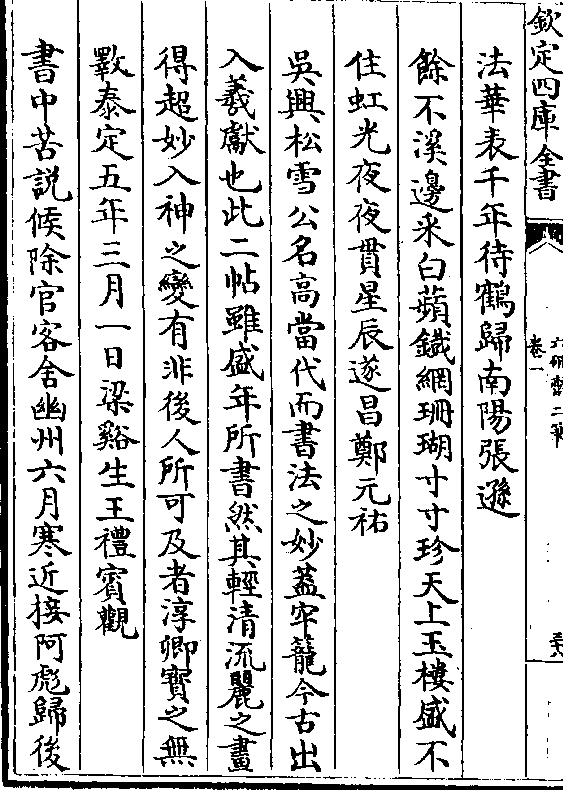 欽定四庫全書
六研齋二筆
卷一
法華表千年待鶴歸南陽張遜
餘不溪邊采白蘋鐵網珊瑚寸寸珍天上玉樓盛不
住虹光夜夜貫星辰遂昌鄭元祐
吳興松雪公名高當代而書法之妙蓋牢籠今古出
入羲獻也此二帖雖盛年所書然其輕清流麗之畫
得超妙入神之變有非後人所可及者淳卿寳之無
斁泰定五年三月一日梁谿生王禮賓觀
書中苦説候除官客舍幽州六月寒近接阿彪歸後